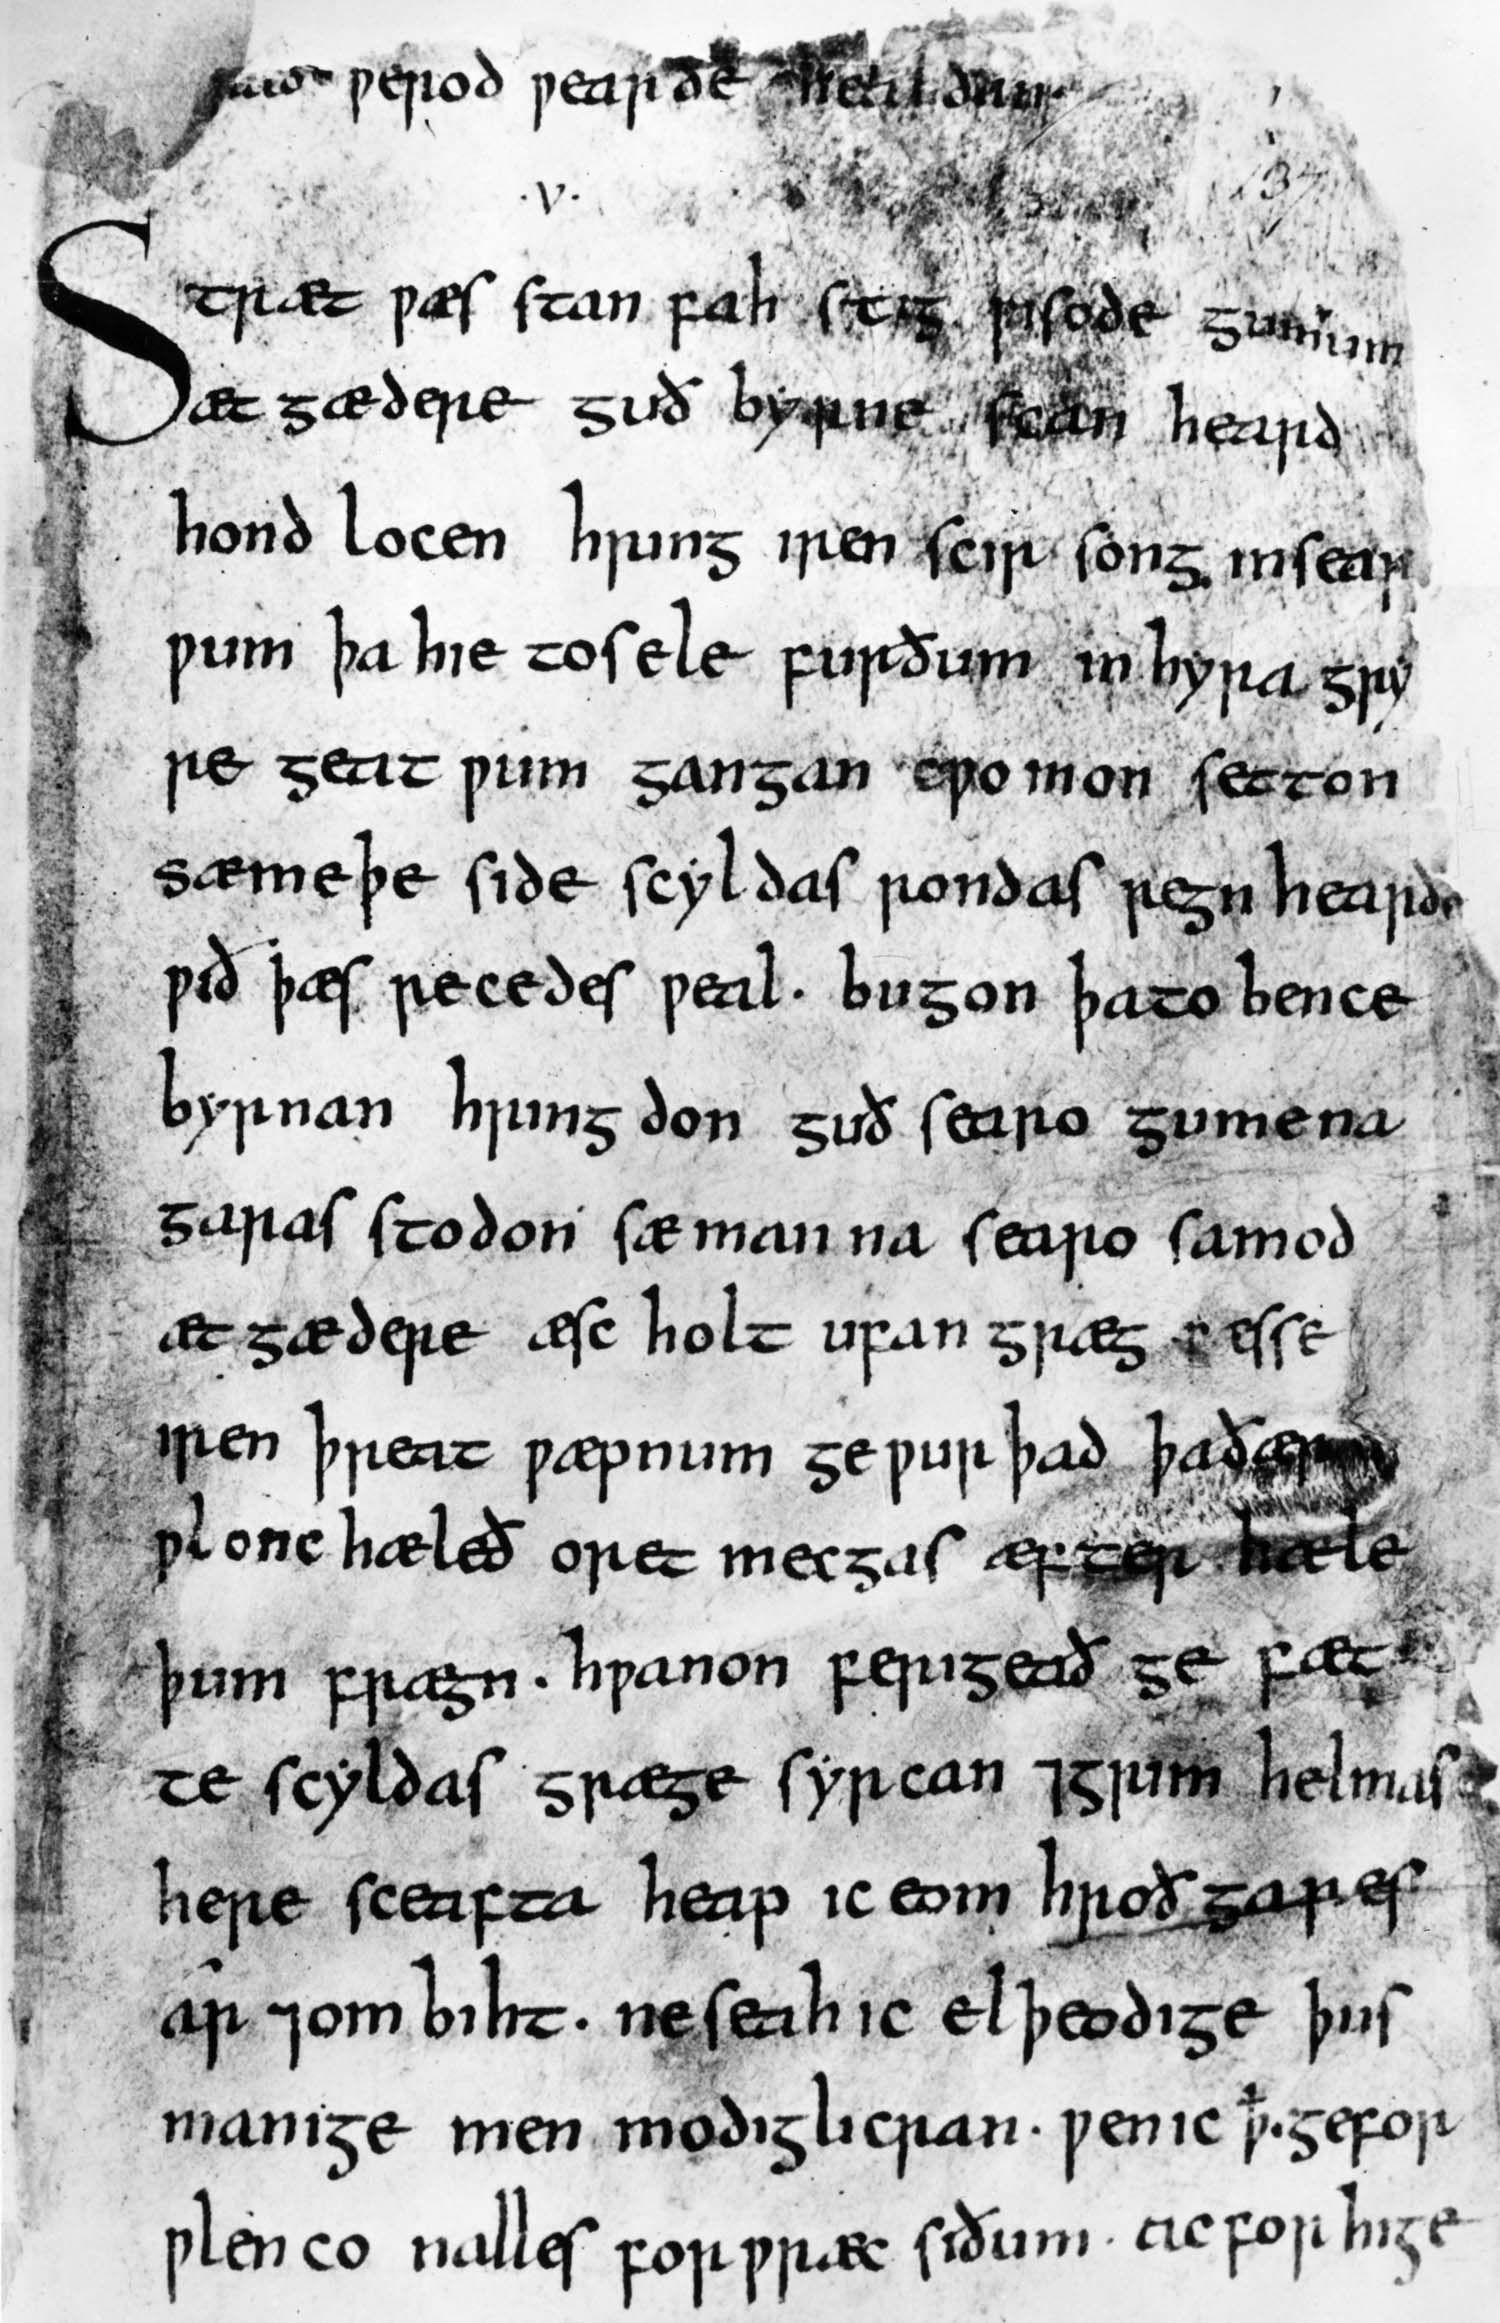 ƿerod ƿearde healdan
·V·
Stræt ƿæs stan fah stig ƿisode gumum
æt gædere guð byrne scan heard
hond locen hring iren scir song insear
ƿum þa hie tosele furðum in hyra gry
re geat ƿum gangan cƿomon setton
sæmeþe side scyldas rondas regn hearde
ƿið þæs recedes ƿeal· bugon þato bence
byrnan hring don guð searo gumena
garas stodon sæ manna searo samod
æt gædere æsc holt ufan græg ƿæs se
iren þreat ƿæpnum ge ƿurþad þaðær
ƿlonc hæleð oret mecgas æfter hæle
þum frægn· hƿanon ferigeað ge fæt
te scyldas græge syrcan ⁊grim helmas
here sceafta heap ic eom hroðgares
ar ⁊om biht· ne seah ic elþeodige þus
manige men modiglicran· ƿen ic ꝥ· ge for
ƿlenco nalles for ƿræc siðum· ac for hige